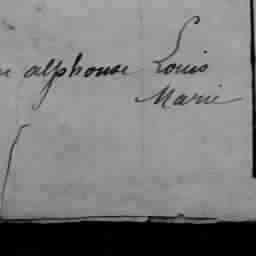 alphonse Louis
Marie